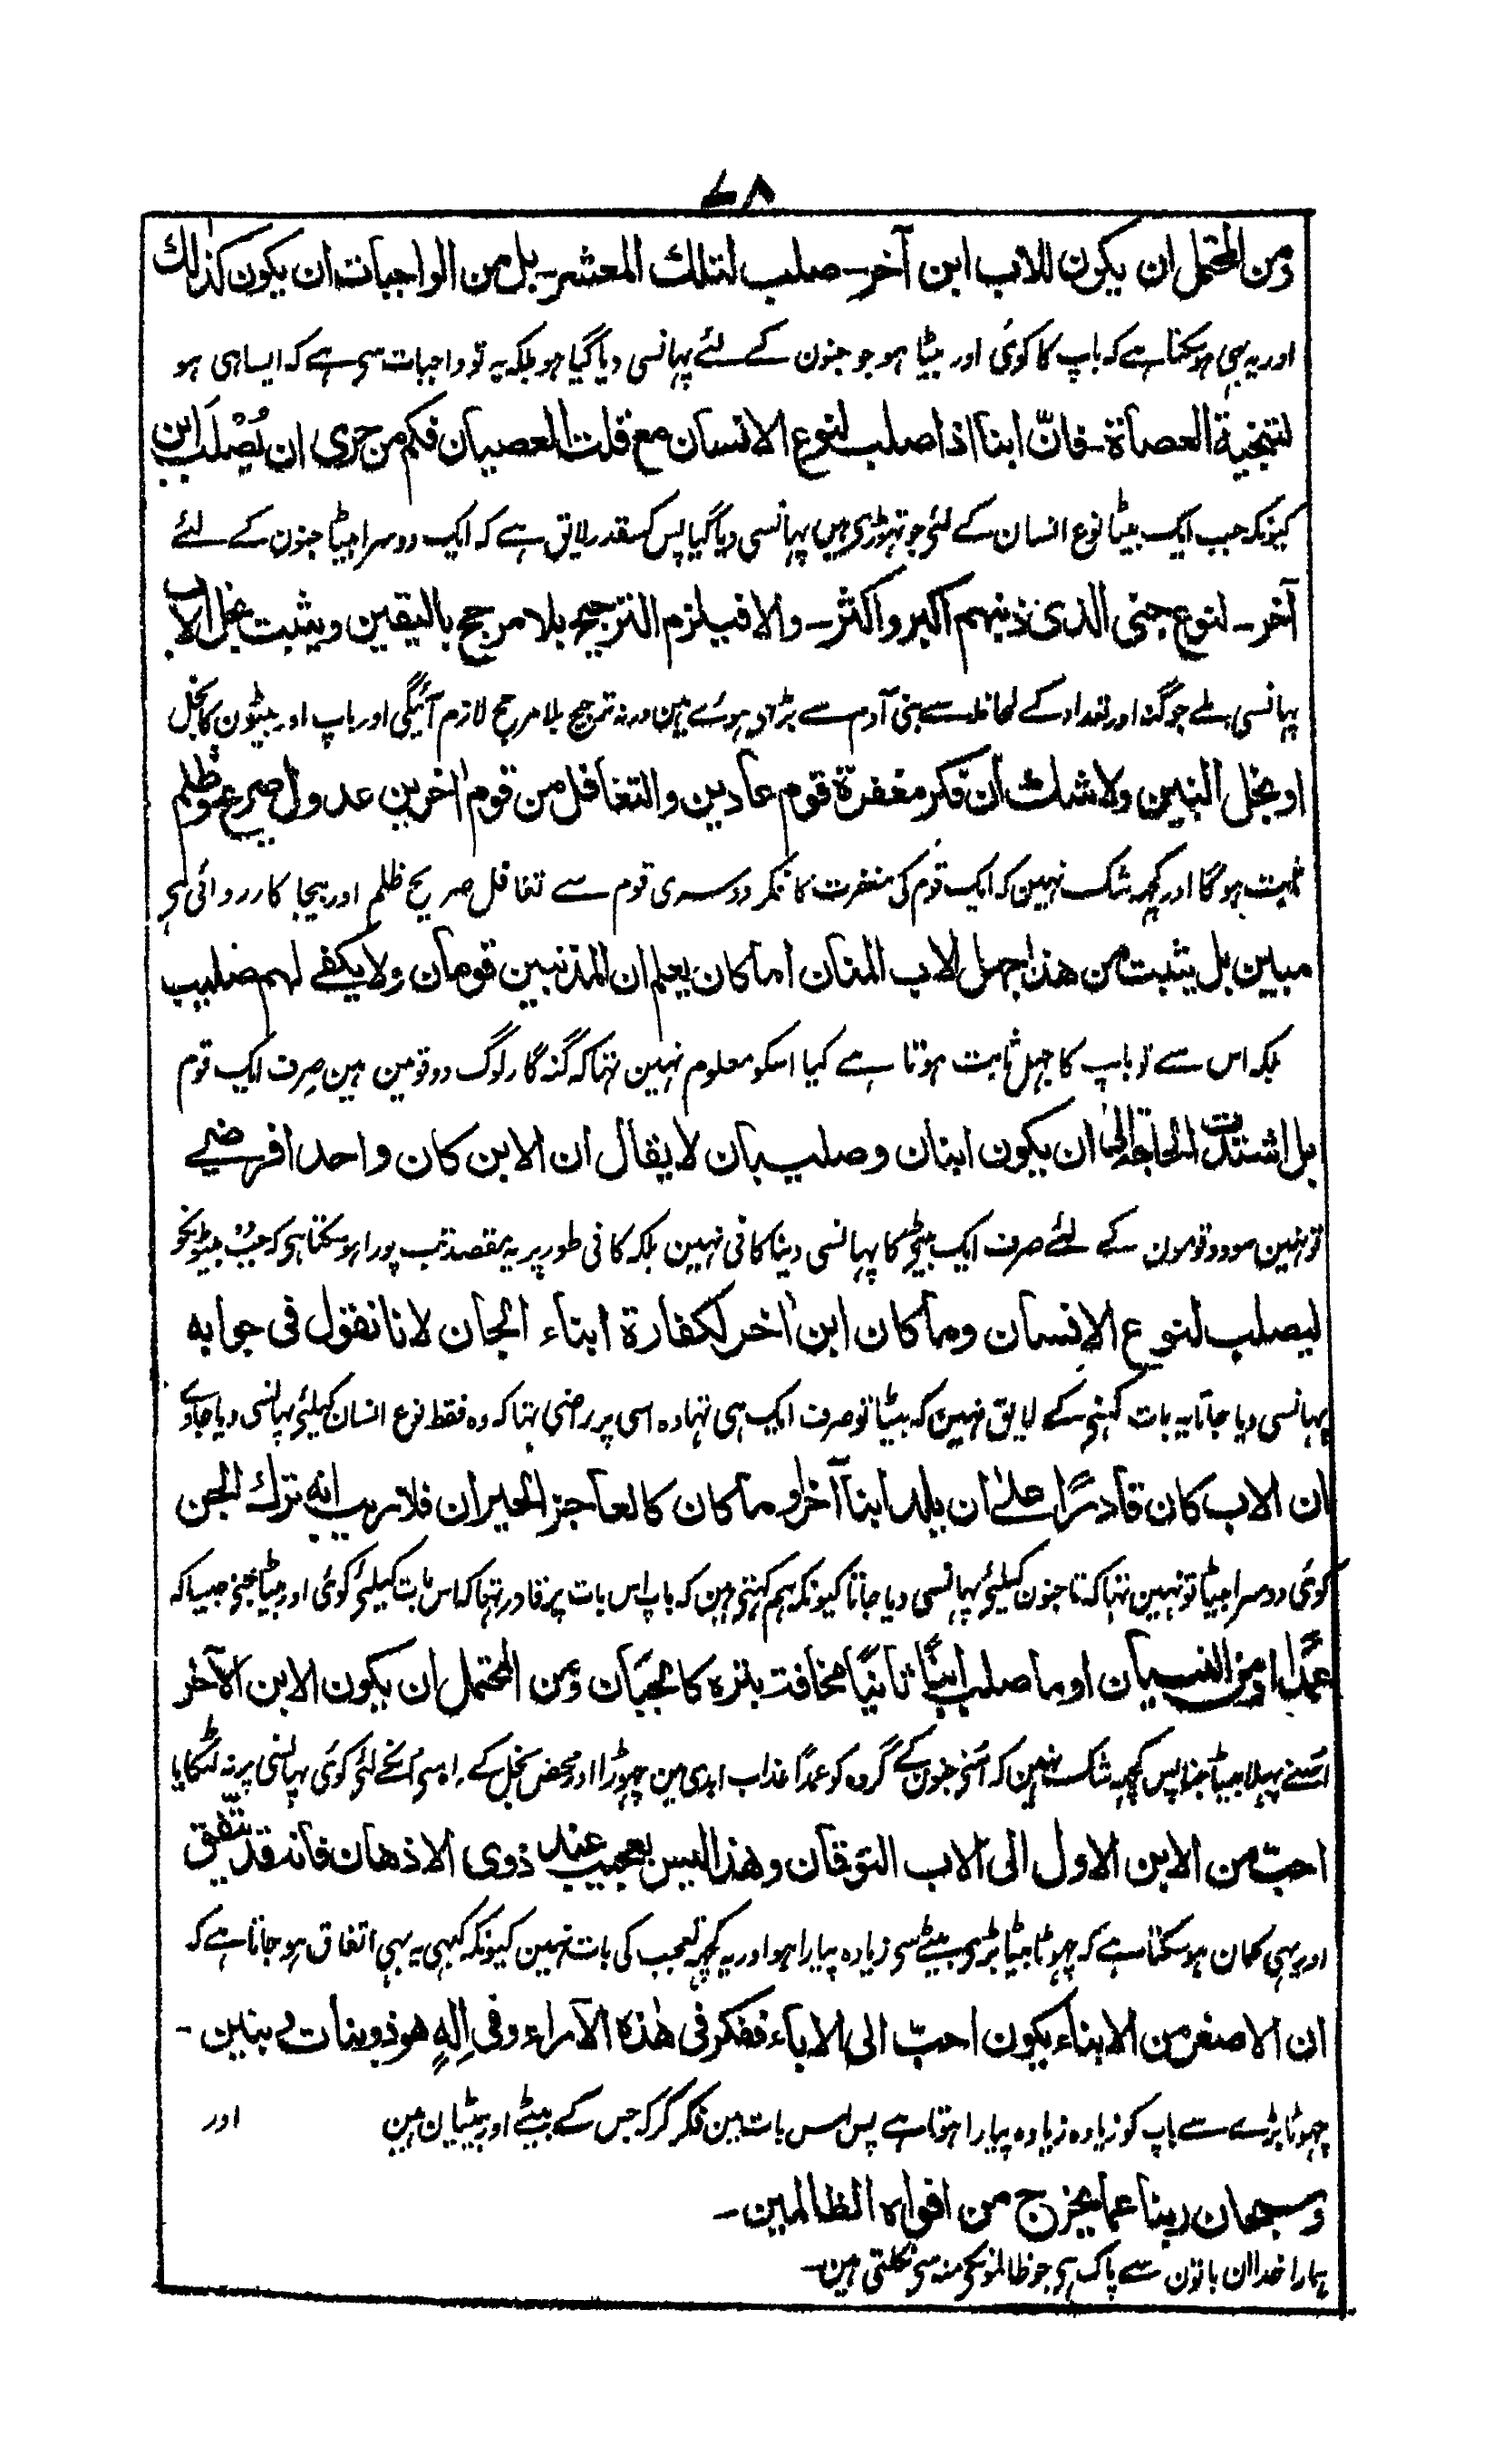 ۷۸
ومن المحتمل ان يكون للاب ابن آخر۔ صلب لتلك المعشر۔ بل من الواجبات ان يكون كذٰلك
اور یہ بہی ہو سکتا ہے کہ باپ کا کوئی اور بیٹا ہو جو جنون کے لئے پہانسی دیا گیا ہو بلکہ یہ تو واجبات سے ہے کہ ایسا ہی ہو
لتنجية العصاة۔ فانّ ابنا اذا صلب لنوع الانسان مع قلت العصيان فكم من حرى ان يُصْلَب ابن
کیونکہ جب ایک بیٹا نوع انسان کے لئے جو تہوڑی ہیں پہانسی دیا گیا پس کسقدر لایق ہے کہ ایک دوسرا بیٹا جنون کے لئے
آخر۔ لنوع جنى الذى ذنبهم اكبر واكثر۔ والا فيلزم الترجيح بلا مرجح باليقين ويثبت بخل الاب
پہانسی ملے جو گنہ اور تعداد کے لحاظ سے بنی آدم سے بڑھے ہوئے ہین ورنہ ترجیح بلا مرجح لازم آئیگی اور باپ اور بیٹون کا بخل
او بخل البنين ولا شك ان فكر مغفرة قوم عادين والتغافل من قوم اٰخرين عدول صريح وظلم
ثابت ہو گا اور کچہہ شک نہین کہ ایک قوم کی مغفرت کا فکر دوسری قوم سے تغافل صریح ظلم اور بیجا کارروائی ہے
مبين بل يثبت من هذا جهل الاب المنان اما كان يعلم ان المذنبين قومان ولا يكفى لهم صليب
بلکہ اس سے تو باپ کا جہل ثابت ہوتا ہے کیا اسکو معلوم نہین تہا کہ گنہ گار لوگ دو قومین ہین صرف ایک قوم
بل اشتدت الحاجة الى ان يكون ابنان وصليبان لا يقال ان الابن كان واحدا فرضى
تو نہین سو دو قومون کے لئے صرف ایک بیٹے کا پہانسی دینا کافی نہین بلکہ کافی طور پر یہ مقصد تب پورا ہو سکتا ہے کہ جب دو بیٹونکو
ليصلب لنوع الانسان وما كان ابن اٰخر لكفارة ابناء الجان لانا نقول فى جوابه
پہانسی دیا جاتا یہ بات کہنی کے لایق نہین کہ بیٹا تو صرف ایک ہی تہا وہ اسی پر راضی تہا کہ وہ فقط نوع انسان کیلئے پہانسی دیا جاوے
ان الاب كان قادرًا علىٰ ان يلد ابنا آخر او ما كان كالعاجز الحيران فلا ريب انه ترك الجن
کوئی دوسرا بیٹا تو نہین تہا کہ تا جنون کیلئے پہانسی دیا جاتا کیونکہ ہم کہتی ہین کہ باپ اس بات پر قادر تہا کہ اس بات کیلئے کوئی اور بیٹا جنی جیسا کہ
عمدًا او من النسيان او ما صلب ابنًا ثانيًا مخافت بتره كالجبان ومن المحتمل ان يكون الابن الآخر
اسنے پہلا بیٹا جنا پس کچہہ شک نہین کہ اسنے جنون کے گروہ کو عمداً عذاب ابدی مین چہوڑا اور محض بخل کے راہ سے انکے لئے کوئی پہانسی پر نہ لٹکایا
احب من الابن الاول الى الاب التوقان وهذا ليس بعجيب عند ذوى الاذهان فانه قد يتفق
اور یہ بہی گمان ہو سکتا ہے کہ چہوٹا بیٹا بڑی بیٹے سے زیادہ پیارا ہو اور یہ کچہہ تعجب کی بات نہین کیونکہ کبہی یہ بہی اتفاق ہو جاتا ہے کہ
ان الاصغر من الابناء يكون احبّ الى الاباء ففكر فى هٰذه الآراء وفى اِلٰهٍ هو ذو بنات و بنين۔
چہوٹا بڑے سے باپ کو زیادہ زیادہ پیارا ہوتا ہے پس اس بات مین فکر کر کہ جس کے بیٹے اور بیٹیان ہین اور
وسبحان ربنا عما يخرج من افواه الظالمين۔
ہمارا خدا ان باتون سے پاک ہے جو ظالمونکی منہ سے نکلتی ہین۔